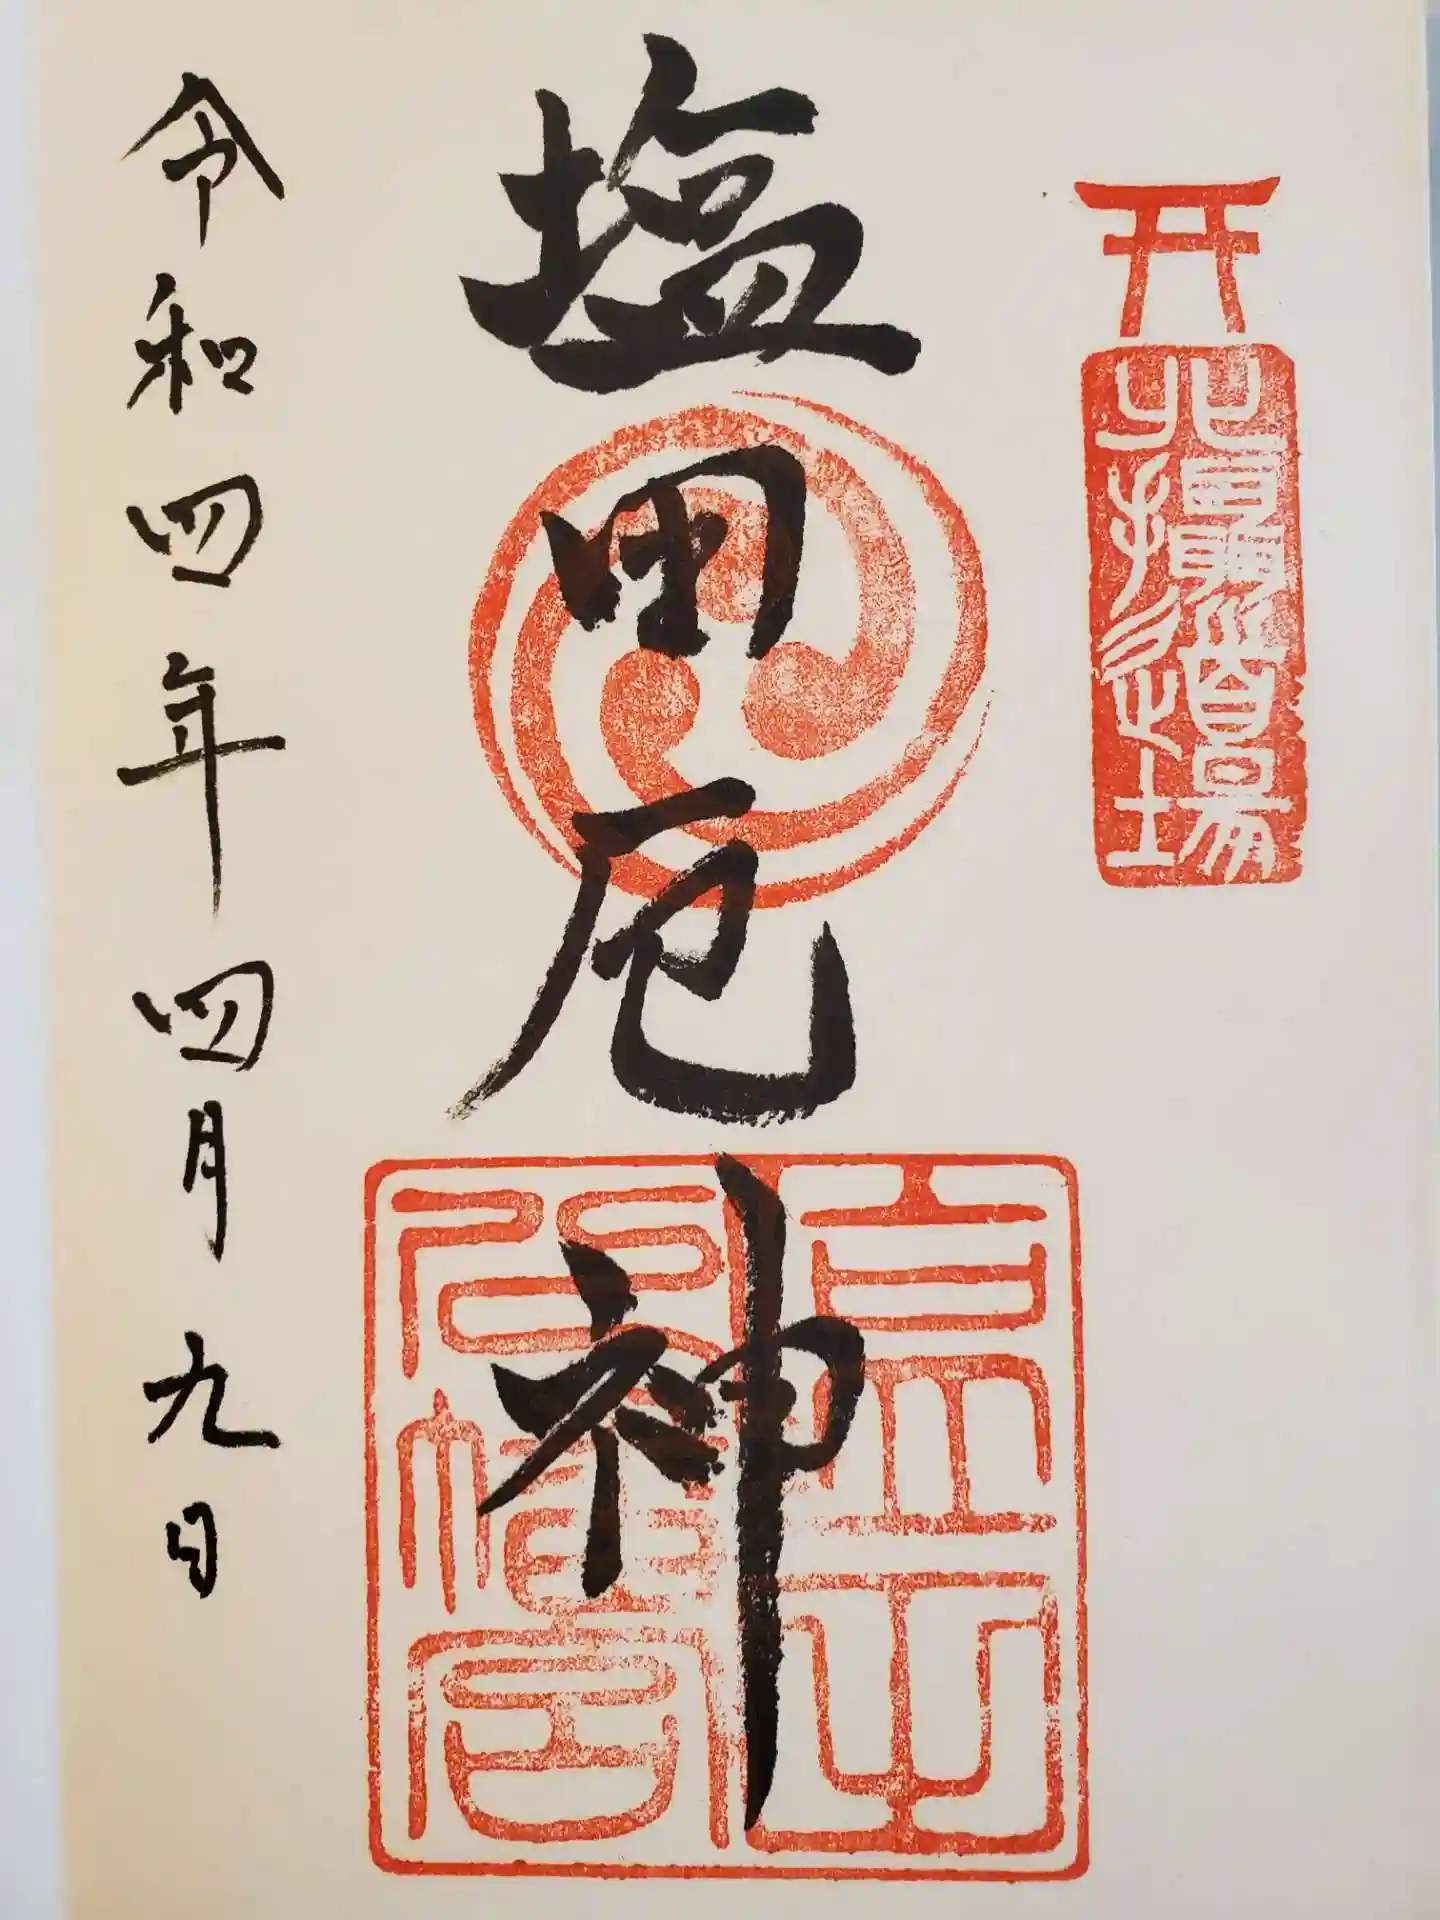 北攝道場
塩田厄神
令和四年四月九日